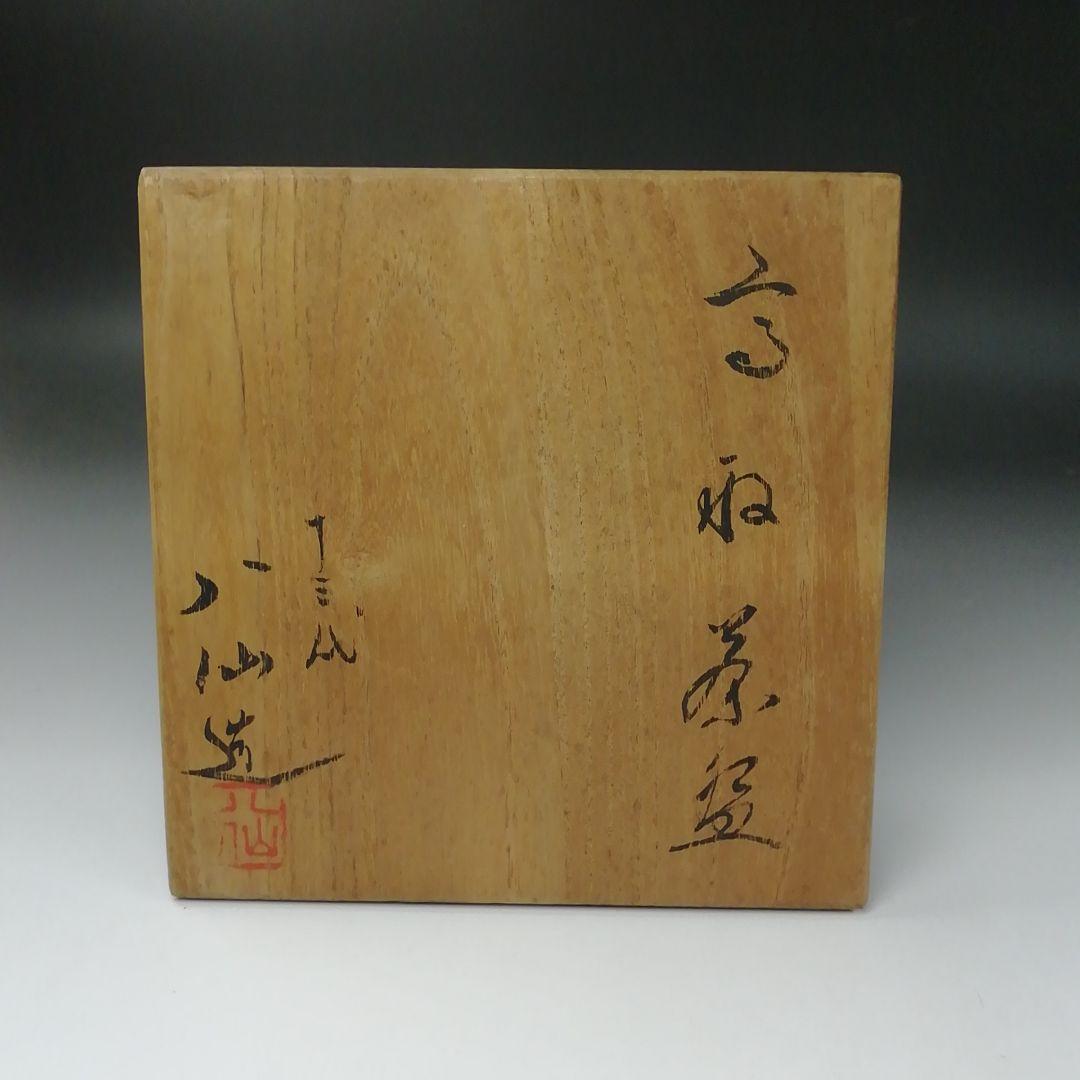 高取茶盌
十三代
八仙造
八仙